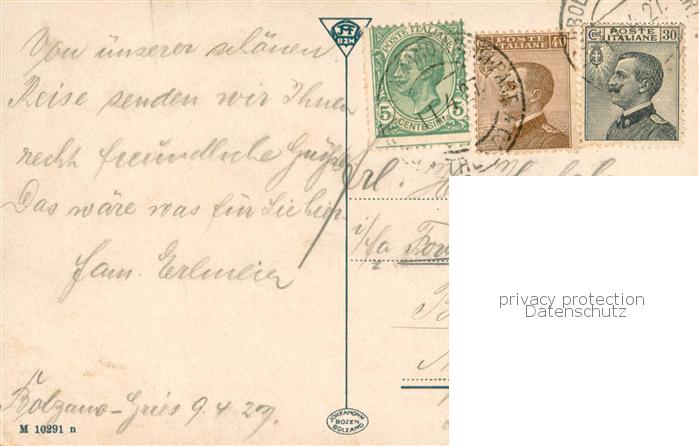 Von unserer schönen
Reise senden wir Ihnen
recht freundliche Grüße
Das wäre was für Sie hier
fam. Erlmeier
Bolzano-Gries 9.4.27.
M 10291 n
BZN
POSTE ITALIANE
5 5
CENTESIMI
POSTE
ITALIANE
40
Cmi POSTE 30
ITALIANE
BOL
27
Frl.
i/fa
privacy protection
Datenschutz
JOH. F. AMONN
BOZEN
BOLZANO